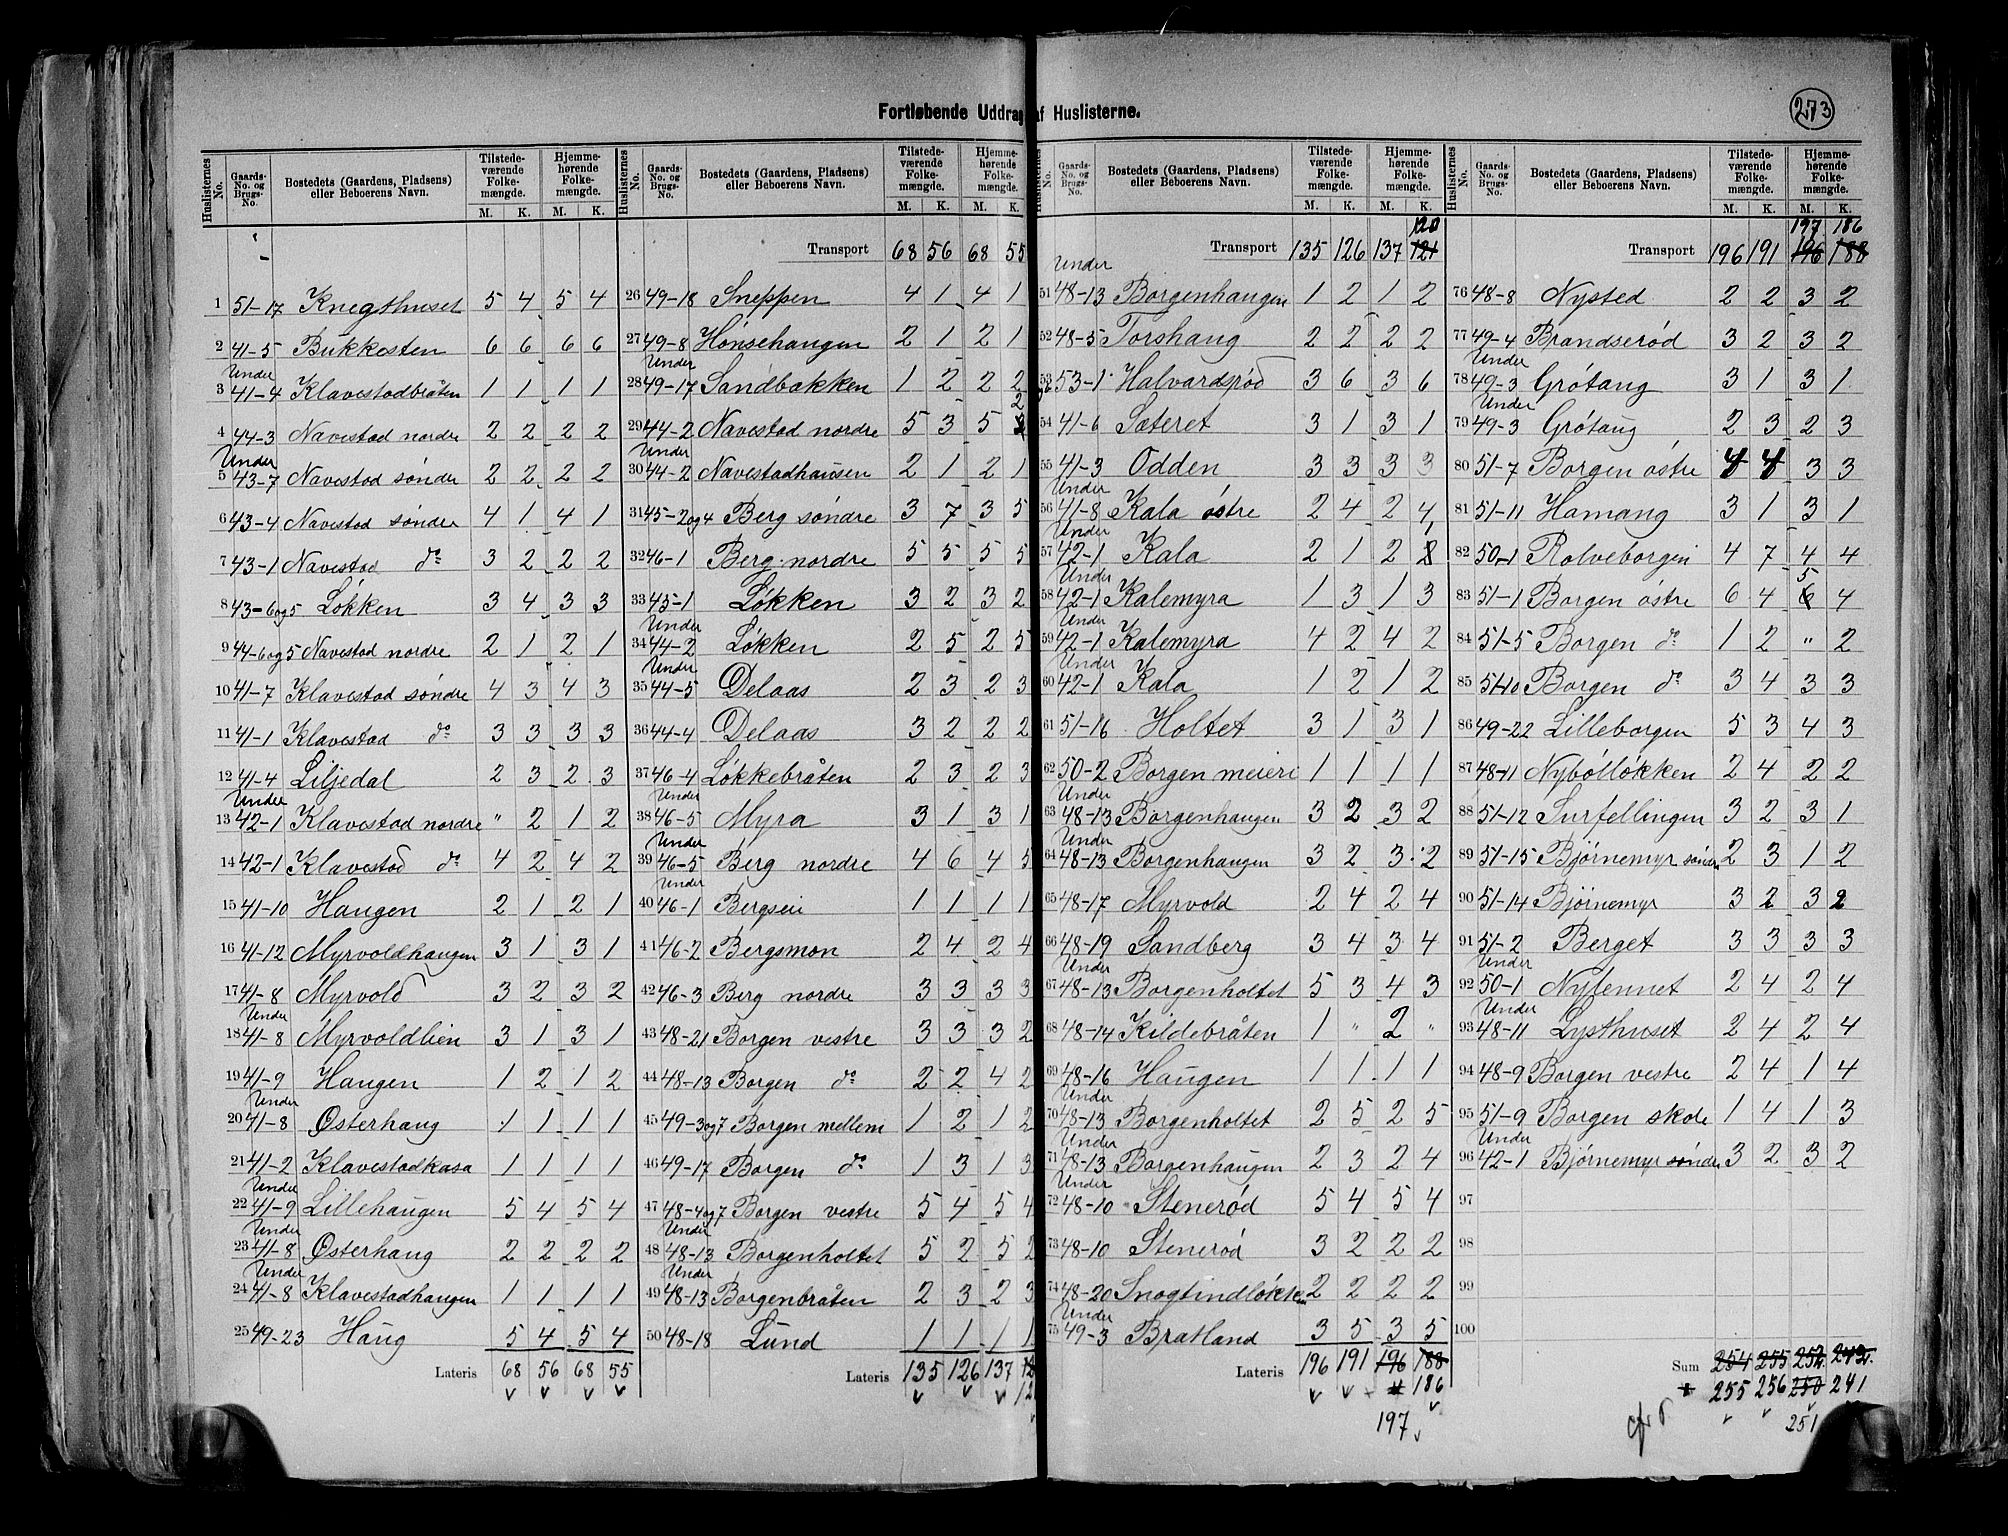 273
Fortløbende Uddrag af Huslisterne.
Huslisternes No. Gaards-No. og Brugs-No. Bostedets (Gaardens, Pladsens) eller Beboerens Navn. Tilstedeværende Folkemængde. M. K. Hjemmehørende Folkemængde. M. K.
1 51-17 Knegthuset 5 4 5 4
2 41-5 Bukkesten 6 6 6 6
3 Under 41-4 Klavestadbråten 1 1 1 1
4 44-3 Navestad nordre 2 2 2 2
5 Under 43-7 Navestad søndre 2 2 2 2
6 43-4 Navestad søndre 4 1 4 1
7 43-1 Navestad do 3 2 2 2
8 43-6og5 Løkken 3 4 3 3
9 44-6og5 Navestad nordre 2 1 2 1
10 41-7 Klavestad søndre 4 3 4 3
11 41-1 Klavestad do 3 3 3 3
12 41-4 Liljedal 2 3 2 3
13 Under 42-1 Klavestad nordre " 2 1 2
14 42-1 Klavestad do 4 2 4 2
15 41-10 Haugen 2 1 2 1
16 41-12 Myrvoldhaugen 3 1 3 1
17 41-8 Myrvold 3 2 3 2
18 Under 41-8 Myrvoldlien 3 1 3 1
19 41-9 Haugen 1 2 1 2
20 Under 41-8 Østerhaug 1 1 1 1
21 41-2 Klavestadkasa 1 1 1 1
22 Under 41-9 Lillehaugen 5 4 5 4
23 Under 41-8 Østerhaug 2 2 2 2
24 Under 41-8 Klavestadhaugen 1 1 1 1
25 49-23 Haug 5 4 5 4
Lateris 68 56 68 55
Huslisternes No. Gaards-No. og Brugs-No. Bostedets (Gaardens, Pladsens) eller Beboerens Navn. Tilstedeværende Folkemængde. M. K. Hjemmehørende Folkemængde. M. K.
Transport 68 56 68 55
26 49-18 Sneppen 4 1 4 1
27 49-8 Hønsehaugen 2 1 2 1
28 Under 49-17 Sandbakken 1 2 2 2
29 44-2 Navestad nordre 5 3 5 2
30 Under 44-2 Navestadhausen 2 1 2 1
31 45-2og4 Berg søndre 3 7 3 5
32 46-1 Berg nordre 5 5 5 5
33 45-1 Løkken 3 2 3 2
34 Under 44-2 Løkken 2 5 2 5
35 Under 44-5 Delaas 2 3 2 3
36 44-4 Delaas 3 2 2 2
37 46-4 Løkkebråten 2 3 2 3
38 Under 46-5 Myra 3 1 3 1
39 Under 46-5 Berg nordre 4 6 4 5
40 Under 46-1 Bergseie 1 1 1 1
41 46-2 Bergsmon 2 4 2 4
42 46-3 Berg nordre 3 3 3 3
43 48-21 Borgen vestre 3 3 3 2
44 48-13 Borgen do 2 2 4 2
45 49-3og7 Borgen mellem 1 2 1 2
46 49-17 Borgen do 1 3 1 3
47 48-4og7 Borgen vestre 5 4 5 4
48 Under 48-13 Borgenholtet 5 2 5 2
49 Under 48-13 Borgenbråten 2 3 2 3
50 48-18 Lund 1 1 1 1
Lateris 135 126 137
Huslisternes No. Gaards-No. og Brugs-No. Bostedets (Gaardens, Pladsens) eller Beboerens Navn. Tilstedeværende Folkemængde. M. K. Hjemmehørende Folkemængde. M. K.
120
Transport 135 126 137 121
51 Under 48-13 Borgenhaugen 1 2 1 2
52 48-5 Torshaug 2 2 2 2
53 53-1 Halvardsrød 3 6 3 6
54 41-6 Sæteret 3 1 3 1
55 41-3 Odden 3 3 3 3
56 Under 41-8 Kala østre 2 4 2 4
57 Under 42-1 Kala 2 1 2 1
58 Under 42-1 Kalemyra 1 3 1 3
59 Under 42-1 Kalemyra 4 2 4 2
60 Under 42-1 Kala 1 2 1 2
61 51-16 Holtet 3 1 3 1
62 50-2 Borgen meieri 1 1 1 1
63 Under 48-13 Borgenhaugen 3 2 3 2
64 Under 48-13 Borgenhaugen 3 2 3 2
65 48-17 Myrvold 2 4 2 4
66 48-19 Sandberg 3 4 3 4
67 Under 48-13 Borgenholtet 5 3 4 3
68 48-14 Kildebråten 1 " 2 "
69 48-16 Haugen 1 1 1 1
70 Under 48-13 Borgenholtet 2 5 2 5
71 Under 48-13 Borgenhaugen 2 3 2 4
72 Under 48-10 Stenerød 5 4 5 4
73 48-10 Stenerød 3 2 2 2
74 48-20 Snogtindløkken 2 2 2 2
75 Under 49-3 Bratland 3 5 3 5
Lateris 196 191 196 188
186
197
Huslisternes No. Gaards-No. og Brugs-No. Bostedets (Gaardens, Pladsens) eller Beboerens Navn. Tilstedeværende Folkemængde. M. K. Hjemmehørende Folkemængde. M. K.
197 186
Transport 196 191 196 188
76 48-8 Nysted 2 2 3 2
77 49-4 Brandserød 3 2 3 2
78 Under 49-3 Grøtaug 3 1 3 1
79 Under 49-3 Grøtaug 2 3 2 3
80 51-7 Borgen østre 4 4 3 3
81 51-11 Hamang 3 1 3 1
82 50-1 Rolveborgen 4 7 4 4
83 51-1 Borgen østre 6 4 5 4
84 51-5 Borgen do 1 2 " 2
85 51-10 Borgen do 3 4 3 3
86 49-22 Lilleborgen 5 3 4 3
87 48-11 Nybølløkken 2 4 2 2
88 51-12 Surfellingen 3 2 3 1
89 51-15 Bjørnemyr søndre 2 3 1 2
90 51-14 Bjørnemyr 3 2 3 2
91 51-2 Berget 3 3 3 3
92 Under 50-1 Nylennet 2 4 2 4
93 Under 48-11 Lysthuset 2 4 2 4
94 48-9 Borgen vestre 2 4 1 4
95 51-9 Borgen skole 1 4 1 3
96 Under 42-1 Bjørnemyr søndre 3 2 3 2
97
98
99
100
Sum 254 255 252 242
255 256 250 241
251